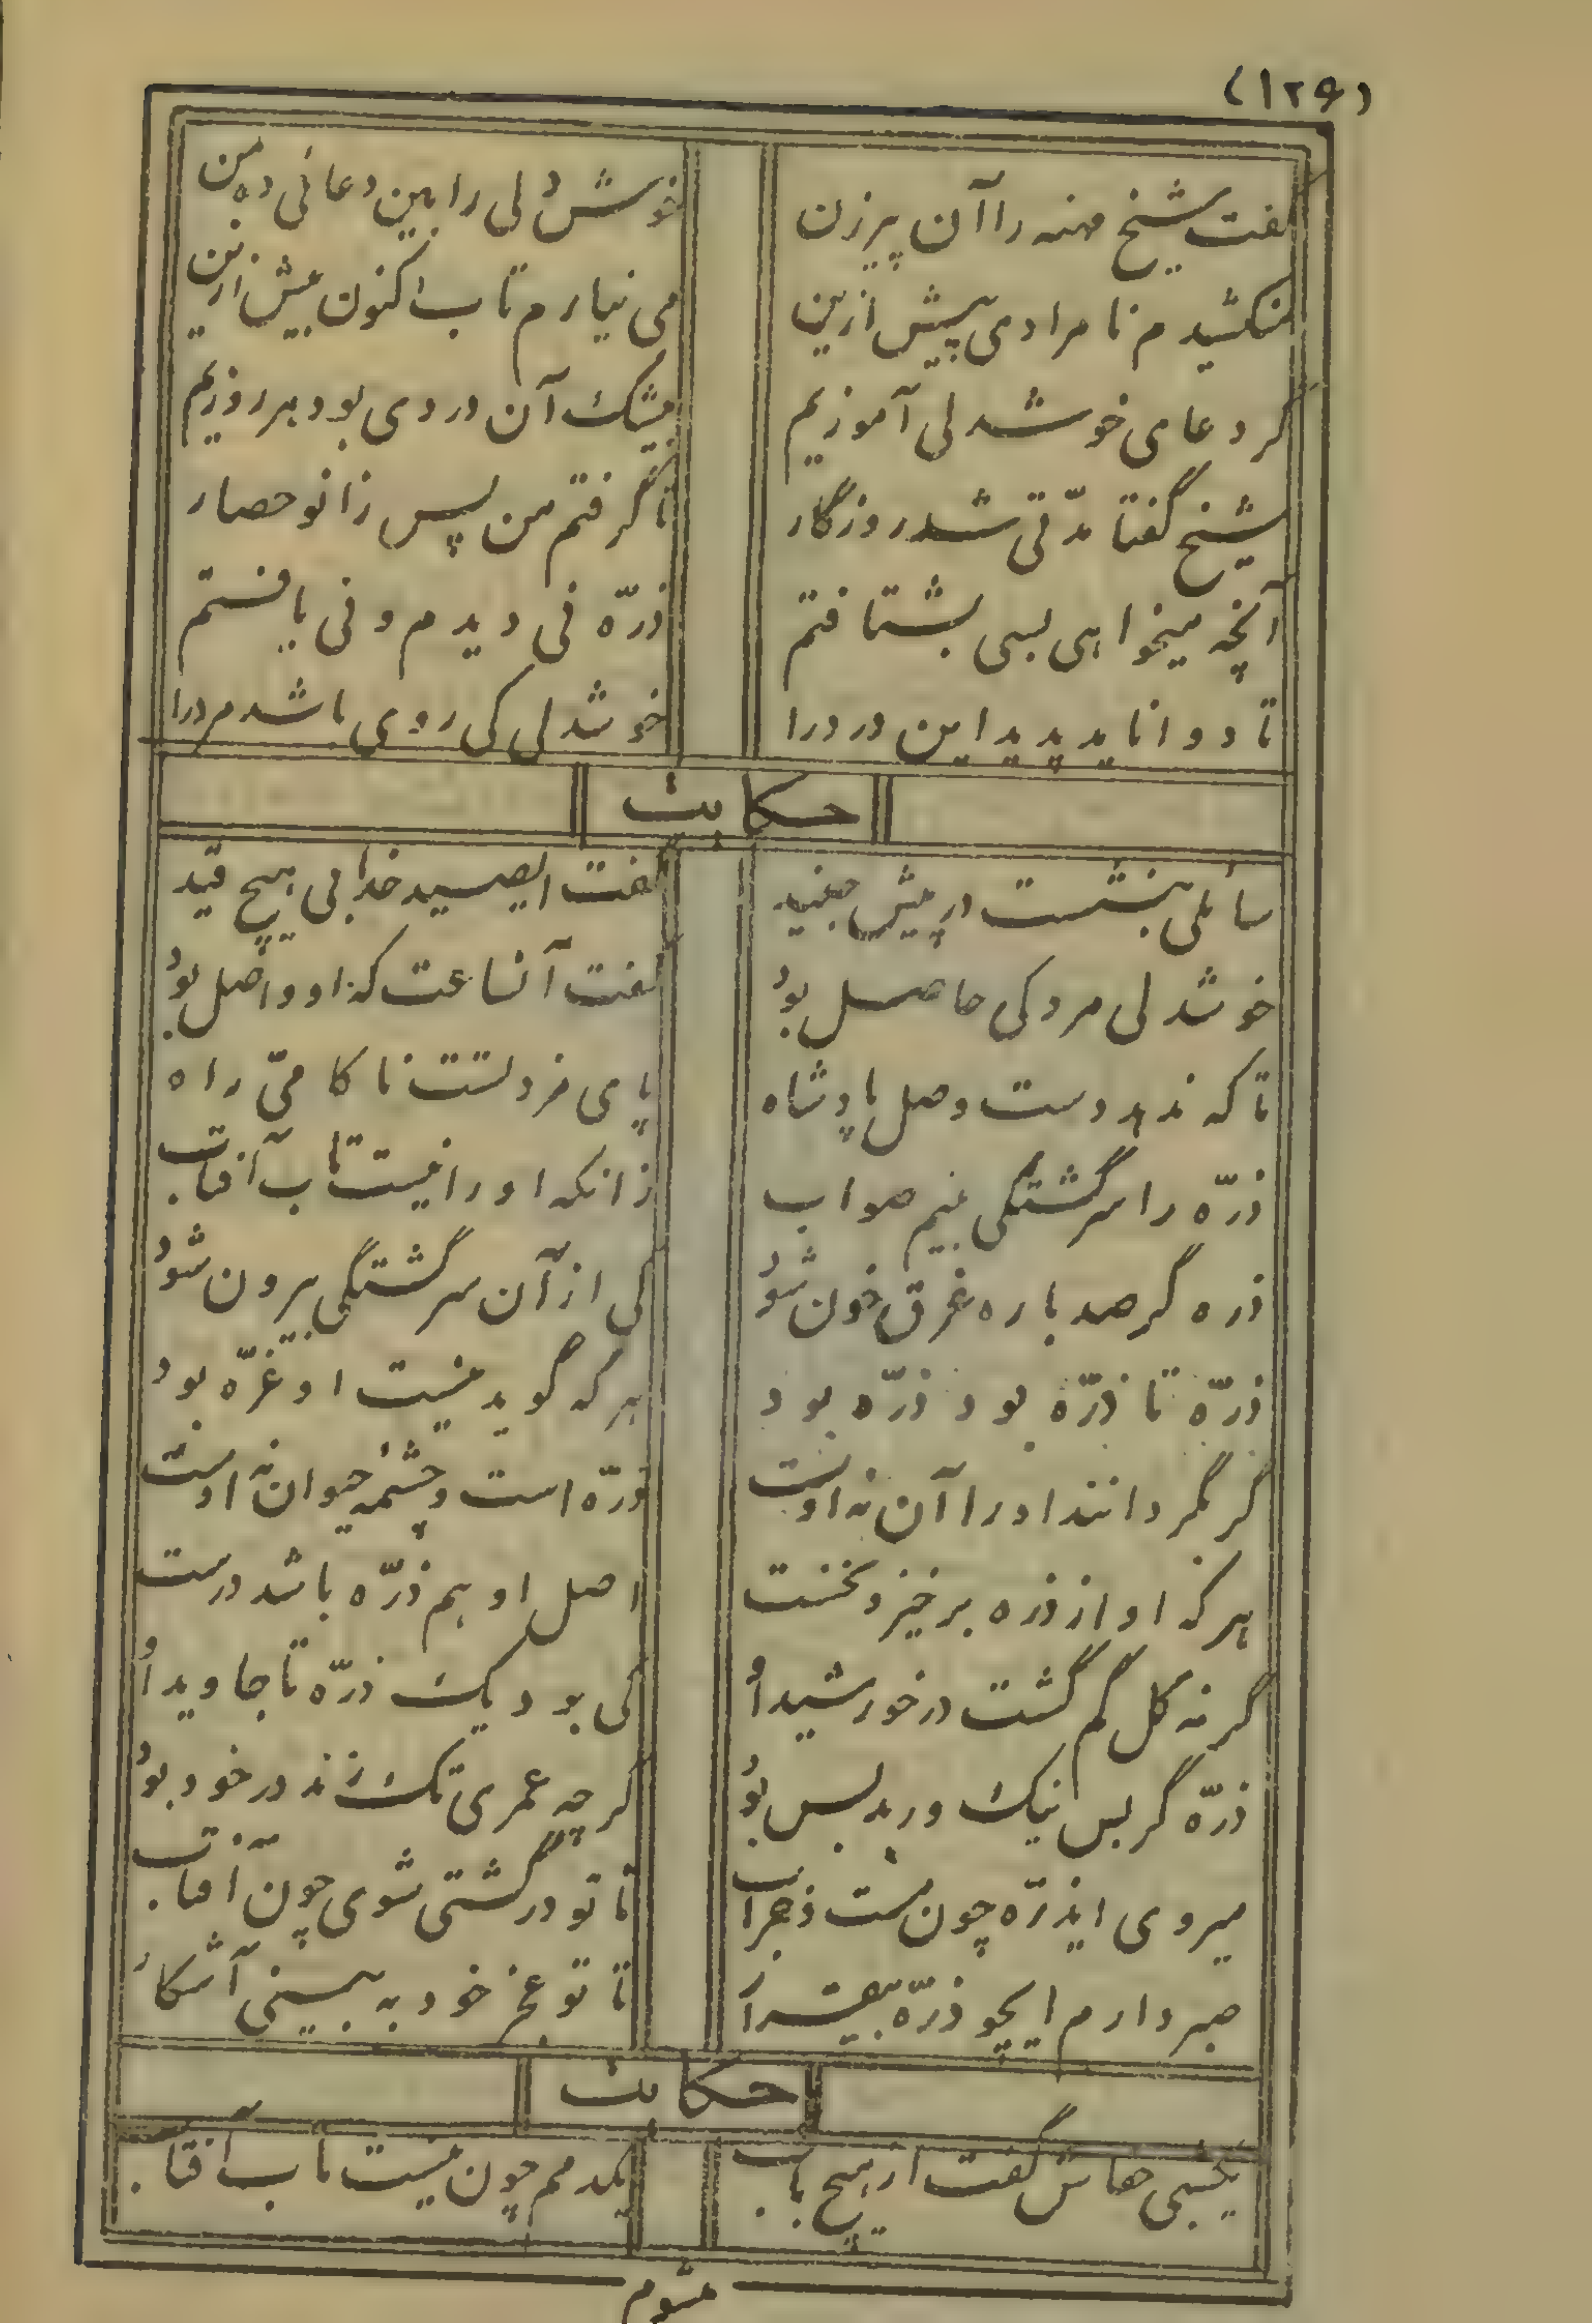 (۱۲۶)
گفت شیخ مهنه را آن پیرزن خوش دلی را هین دعائی ده بمن
میکشیدم نامرادی پیش ازین می نیارم تاب اکنون بیش ازین
گر دعای خوشدلی آموزیم بیشک آن وردی بود هر روزیم
شیخ گفتا مدّتی شد روزگار تا گرفتم من پس زانو حصار
آنچه میخواهی بسی بشتافتم ذرّه نی دیدم و نی یافتم
تا دوا ناید پدید این درد را خوشدلی کی روی باشد مرد را
حکایت
سائلی بنشست در پیش جنید گفت ایصید خدا بی هیچ قید
خوشدلی مرد کی حاصل بود گفت آنساعت که او واصل بود
تا که ندهد دست وصل پادشاه پای مزد تست ناکامیّ راه
ذرّه را سرگشتگی بینم صواب زانکه او را نیست تاب آفتاب
ذره گر صد باره غرق خون شود کی از آن سرگشتگی بیرون شود
ذرّه تا ذرّه بود ذرّه بود هر که گوید نیست او غرّه بود
گر بگردانند او را آن نه اوست ذرّه است و چشمه حیوان نه اوست
هر که او از ذره برخیزد نخست اصل او هم ذرّه باشد درست
گر نه کل گم گشت در خورشید او کی بود یک ذرّه تا جاوید او
ذرّه گر بس نیک ور بد بس بود گرچه عمری تک زند در خود بود
میروی ایذرّه چون مست خراب تا تو در گشتی شوی چون آفتاب
صبر دارم ایچو ذرّه بیقرار تا تو عجز خود به بینی آشکار
حکایت
یکشبی خفاش گفت از هیچ باب یکدمم چون نیست تاب آفتاب